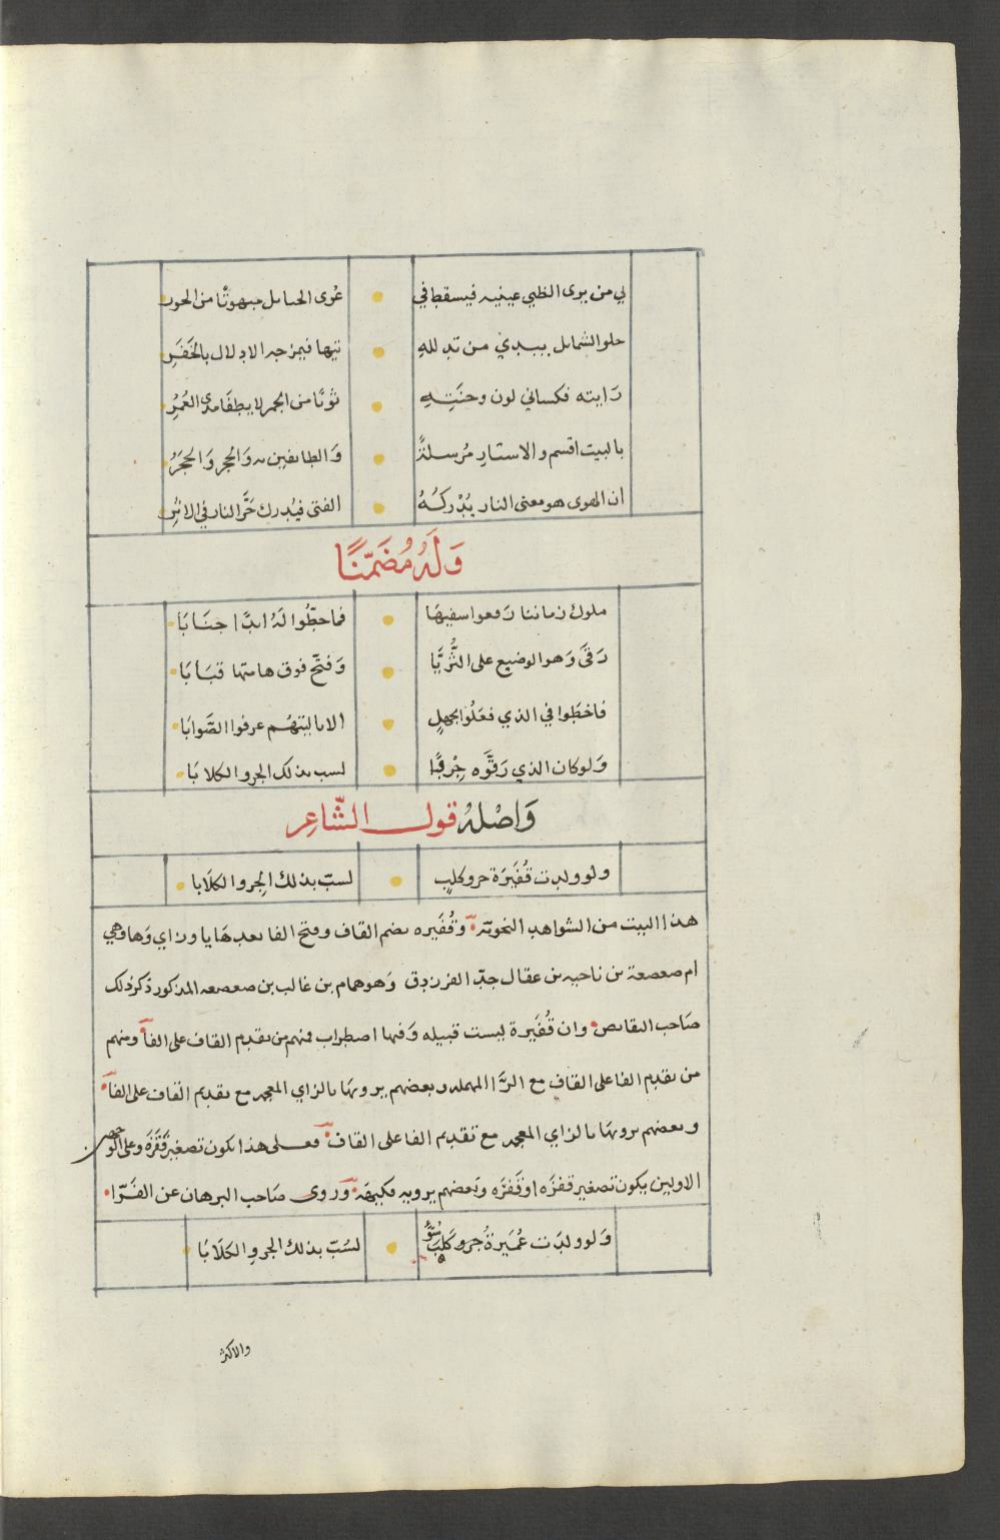 لي من يرى الظبي عينيه فيسقط في عُرى الحبايل مبهوتًا من الحور
حلو الشمايل يبدي من تدلله تيها فيمزجه الادلال بالخَفَرِ
رَايته فكساني لون وجنَتِهِ ثوبًا من الجمر لا يطفَا مدى العُمُرِ
بالبيت اقسم والاستارِ مُرسلةً وَالطايفين به وَالحجر وَالحجَرُ
ان الهوى هو معنى النار يُدْركُهُ الفتى فيُدرك حَرَّ النار في الاثرِ
وَلَهُ مُضَمّنًا
ملوك زماننا رَفعوا سفيهَا فما حطّوا لَهُ ابدًا جنَابَا
رَقىَ وَهو الوضيع على الثُّرَيَّا وَفتّح فوق هامتها قبَابَا
فاخطَوا في الذي فعَلُوا بجهلٍ الا يا ليتهُم عرفوا الصَّوابَا
وَلو كان الذي رَقَّوه جِروًا لسب بذلك الجرو الكلابَا
وَاصْلهُ قول الشّاعِر
ولو ولدت قُفَيرَة جرو كلبٍ لسبّ بذلك الجرو الكلَابا
هذا البيت من الشواهد النحويّة وقُفَيره بضم القاف وفتح الفا بعدهَا يا وزاي وَها وهي
ام صعصعة بن ناجيه بن عقال جدّ الفرزدق وَهو همام بن غالب بن صعصعه المذكور ذكر ذلك
صَاحب النقايص وان قُفَيرة ليست قبيله وَفيها اضطراب فمنهم من تقديم القاف على الفا ومنهم
من تقديم الفا على القاف مع الرَّا المهمله وبعضهم يرويهَا بالزاي المعجمه مع تقديم القاف على الفا
وبعضهم يرويهَا بالزاي المعجمه مع تقديم الفا على القاف فعلى هذا تكون تصغير فَقزَة وعلى الوجهين
الاولين يكون تصغير قفزَه او قَفزَه وبَعضهم يرويه فكيهَة وَروى صَاحب البرهان عن الفَرّا
وَلو ولدَت عُمَيرةُ جرو كَلبٍ لسُبّ بذلك الجروِ الكلَابُا
والاكثر